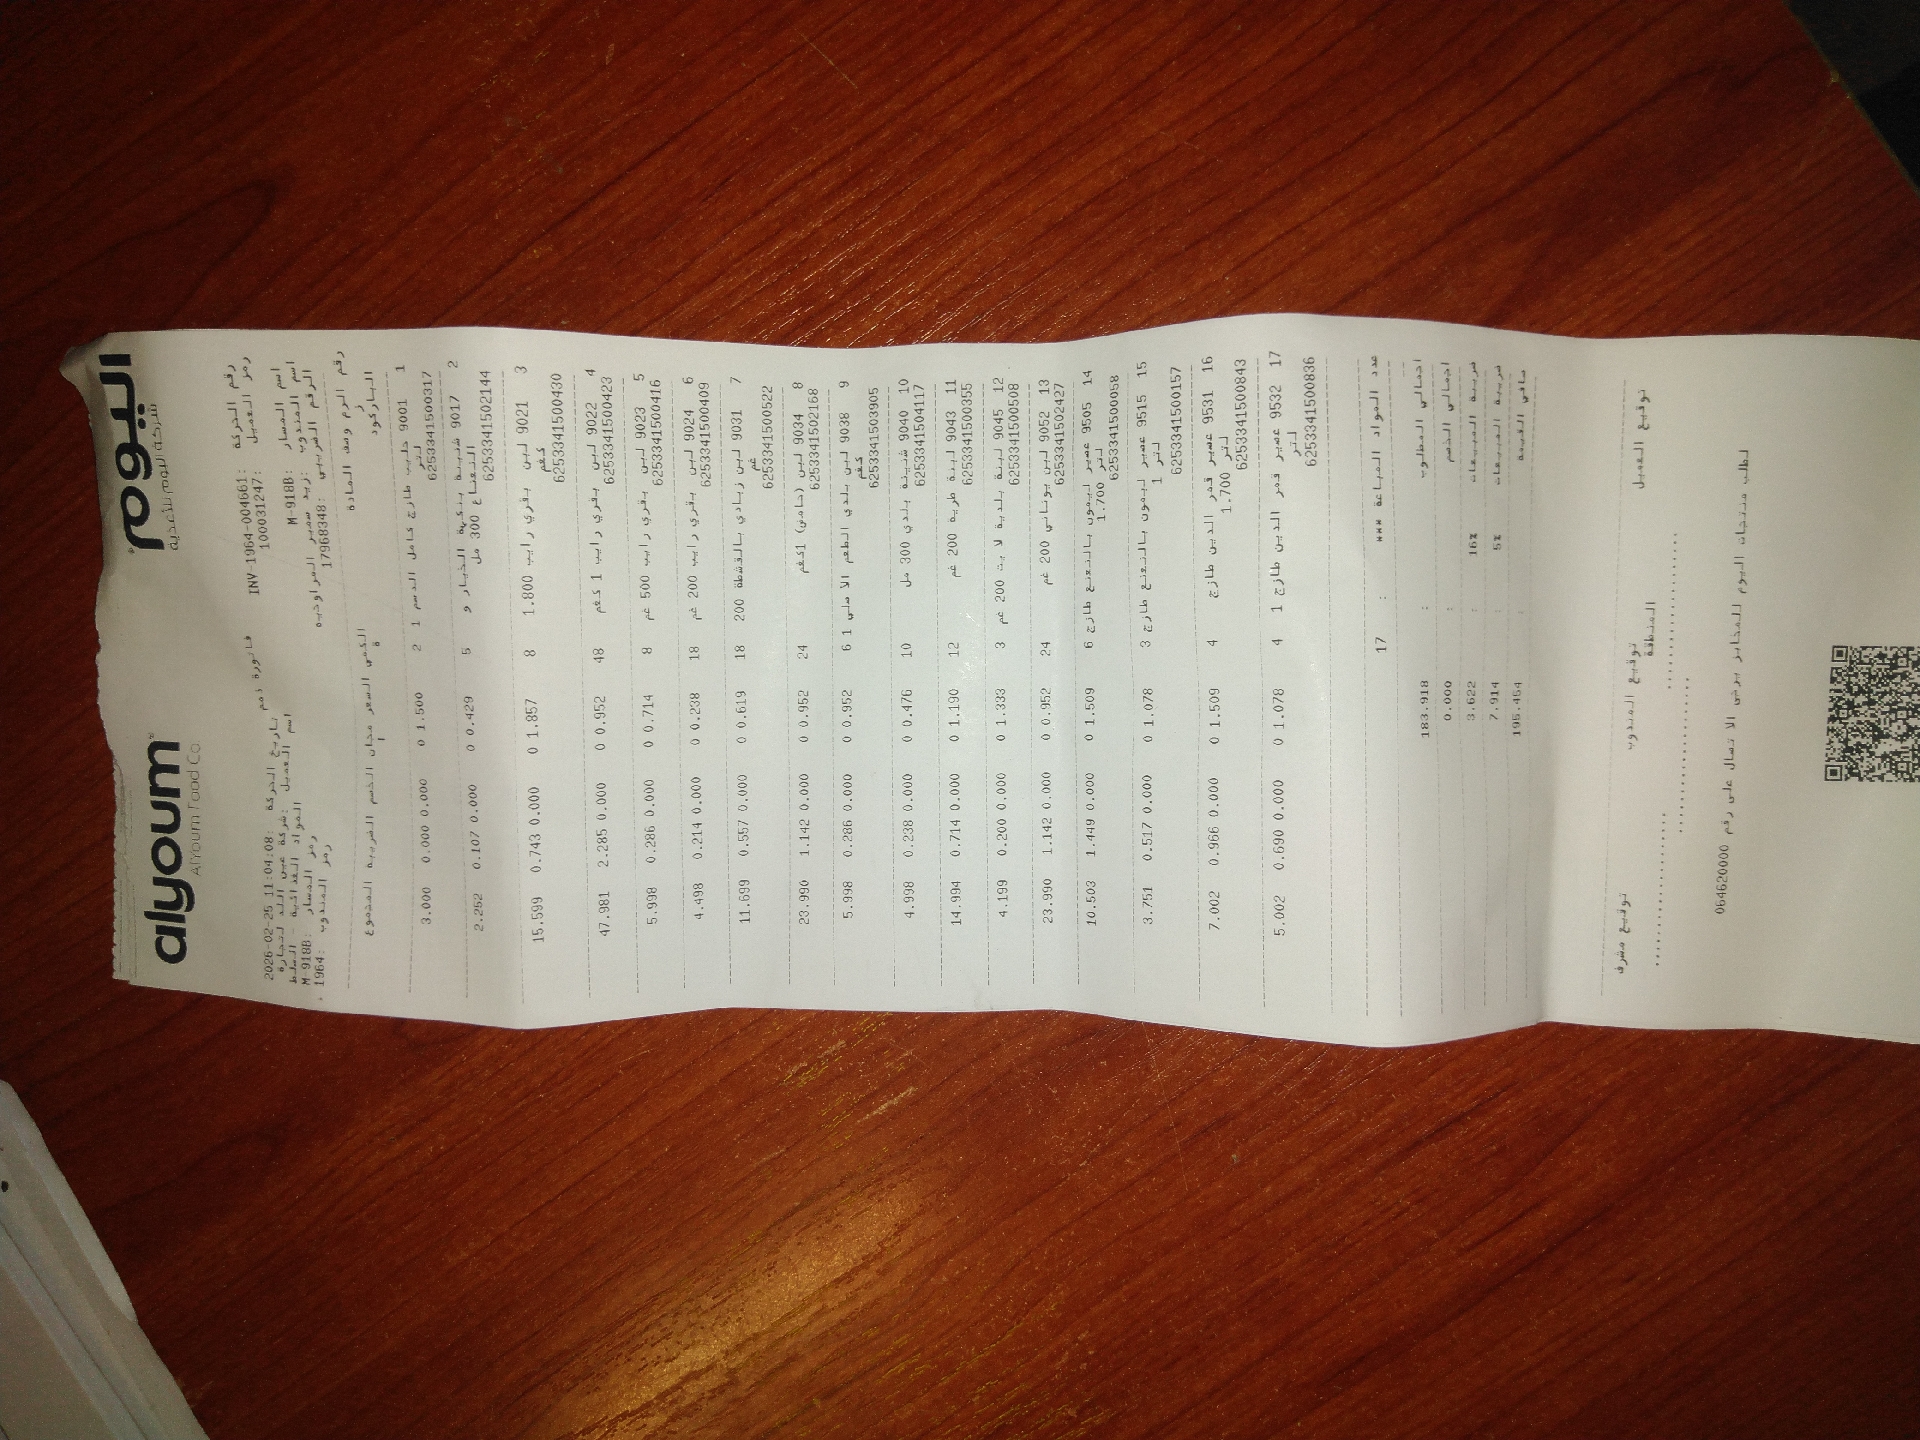 alyoum اليوم
AlYoum Food Co شركة اليوم للأغذية
فاتورة ذمم
رقم الحركة: INV-1964-004661
تاريخ الحركة: 2026-02-25 11:04:08
رمز العميل: 100031247
اسم العميل: شركة عين اللد لتجارة
المواد الغذائية - السلط
اسم المسار: M-918B
رمز المسار: M-918B
اسم المندوب: زيد سمير المراودبه
رمز المندوب: 1964
الرقم الضريبي: 17968348
رقم الرم وصف المادة الكمي السعر مجان الخسم الضريبة المجموع
ز ة ا
الباركود
1 9001 حليب طازج كامل الدسم 1 2 1.500 0 0.000 0.000 3.000
لتر
6253341500317
2 9017 شنينة بنكهة الخيار و 5 0.429 0 0.000 0.107 2.252
النعناع 300 مل
6253341502144
3 9021 لبن بقري رايب 1.800 8 1.857 0 0.000 0.743 15.599
كغم
6253341500430
4 9022 لبن بقري رايب 1 كغم 48 0.952 0 0.000 2.285 47.981
6253341500423
5 9023 لبن بقري رايب 500 غم 8 0.714 0 0.000 0.286 5.998
6253341500416
6 9024 لبن بقري رايب 200 غم 18 0.238 0 0.000 0.214 4.498
6253341500409
7 9031 لبن زبادي بالقشطة 200 18 0.619 0 0.000 0.557 11.699
غم
6253341500522
8 9034 لبن (حامض) 1كغم 24 0.952 0 0.000 1.142 23.990
6253341502168
9 9038 لبن بلدي الطعم الاصلي 1 6 0.952 0 0.000 0.286 5.998
كغم
6253341503905
10 9040 شنينة بلدي 300 مل 10 0.476 0 0.000 0.238 4.998
6253341504117
11 9043 لبنة طرية 200 غم 12 1.190 0 0.000 0.714 14.994
6253341500355
12 9045 لبنة بلدية لايت 200 غم 3 1.333 0 0.000 0.200 4.199
6253341500508
13 9052 لبن يوناني 200 غم 24 0.952 0 0.000 1.142 23.990
6253341502427
14 9505 عصير ليمون بالنعنع طازج 6 1.509 0 0.000 1.449 10.503
1.700 لتر
6253341500058
15 9515 عصير ليمون بالنعنع طازج 3 1.078 0 0.000 0.517 3.751
1 لتر
6253341500157
16 9531 عصير قمر الدين طازج 4 1.509 0 0.000 0.966 7.002
1.700 لتر
6253341500843
17 9532 عصير قمر الدين طازج 1 4 1.078 0 0.000 0.690 5.002
لتر
6253341500836
عدد المواد المباعة *** : 17
اجمالي المطلوب : 183.918
اجمالي الخصم : 0.000
ضريبة المبيعات 16% : 3.622
ضريبة المبيعات 5% : 7.914
صافي القيمة : 195.454
توقيع العميل توقيع المندوب توقيع مشرف
المنطقة
لطلب منتجات اليوم للمخابز يرجى الاتصال على رقم 064620000